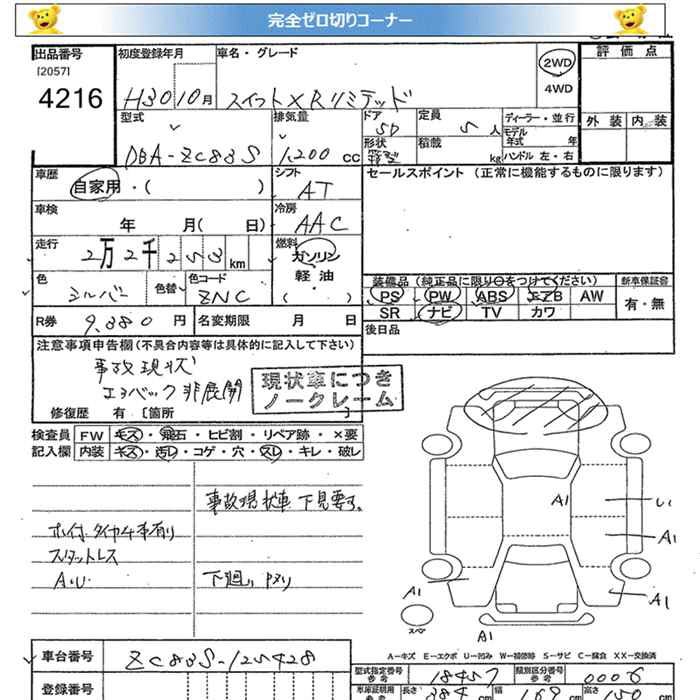 完全ゼロ切りコーナー
出品番号
[2057]
4216
初度登録年月
H30 10月
車名・グレード
スイフト XRリミテッド
2WD
4WD
評価点
外装 内装
型式
DBA-ZC83S
排気量
1,200 cc
ドア
5D
定員
5人
形状
箱型
積載
kg
ディーラー・並行
モデル年式 年
ハンドル 左・右
車歴
自家用・( )
シフト
AT
セールスポイント (正常に機能するものに限ります)
車検
年 月( 日)
冷房
AAC
走行
2万2千253km
燃料
ガソリン
軽油
( )
色
シルバー
色替
色コード
ZNC
装備品 (純正品に限り○をつけてください)
新車保証書
PS PW ABS エアB AW
有・無
SR ナビ TV カワ
R券
9,880円
名変期限 月 日
後日品
注意事項申告欄 (不具合内容等は具体的に記入して下さい)
事故現状
エアバック非展開
現状車につき
ノークレーム
修復歴 有 [箇所 ]
検査員
記入欄
FW キズ・飛石・ヒビ割・リペア跡・×要
内装 キズ・汚レ・コゲ・穴・スレ・キレ・破レ
事故現状車 下見要す。
ホイ付タイヤ4本有り
スタットレス
A.U
下廻り
A1
A1
A1
A1
A1
スペア
A=キズ E=エクボ U=凹み W=補修跡 S=サビ C=腐食 XX=交換済
車台番号
ZC83S-125428
型式指定番号
参考
18457
類別区分番号
参考
0006
登録番号
車庫証明用
参考
長さ
384 cm
幅
169 cm
高さ
150 cm